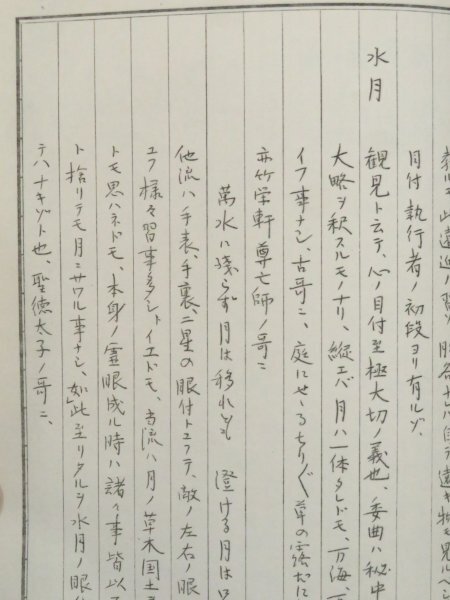 目付執行者ノ初段ヨリ有ルゾ、
水月
観見ト云テ、心ノ目付至極大切ノ義也、委曲ハ秘中
大略ヲ釈スルモノナリ、縦エバ月ハ一体タレドモ、万海、
イフ事ナシ、古哥ニ、庭にせるちりぐ草の露だに
亦竹栄軒尊七師ノ哥ニ
萬水ハ残らず月は移れども 澄ける月は
他流ハ手表、手裏、二星の眼付トエフテ、敵ノ左右ノ眼
エフ様々習事多シトイエドモ、当流ハ月ノ草木国土
トモ思ハネドモ、本身ノ霊眼成ル時ハ諸々事皆以
ト捨リテモ月ニサワル事ナシ、如此至リタルヲ水月ノ眼
テハナキゾト也、聖徳太子ノ哥ニ、